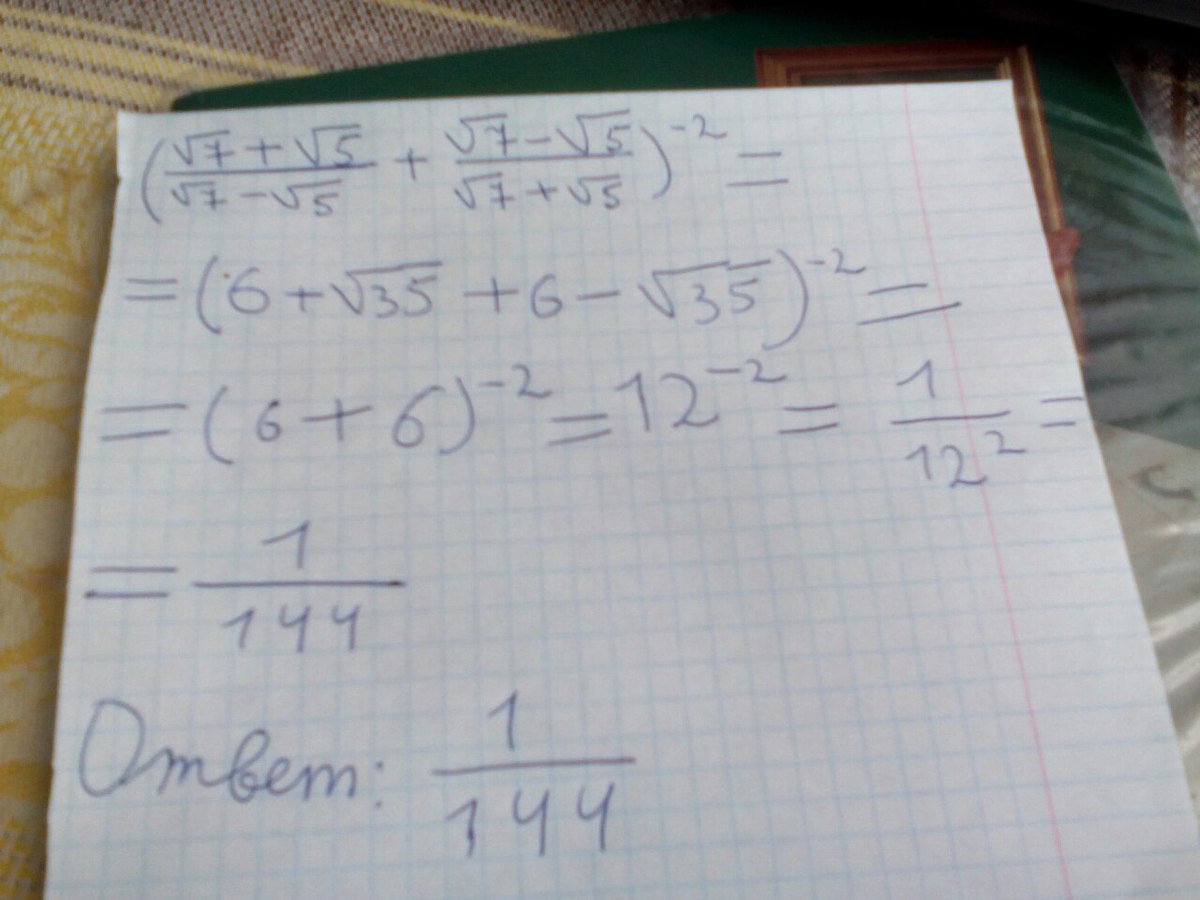 (√7+√5/√7-√5 + √7-√5/√7+√5)^-2 =
= (6+√35 +6-√35)^-2 =
= (6+6)^-2 = 12^-2 = 1/12^2 =
= 1/144
Ответ: 1/144